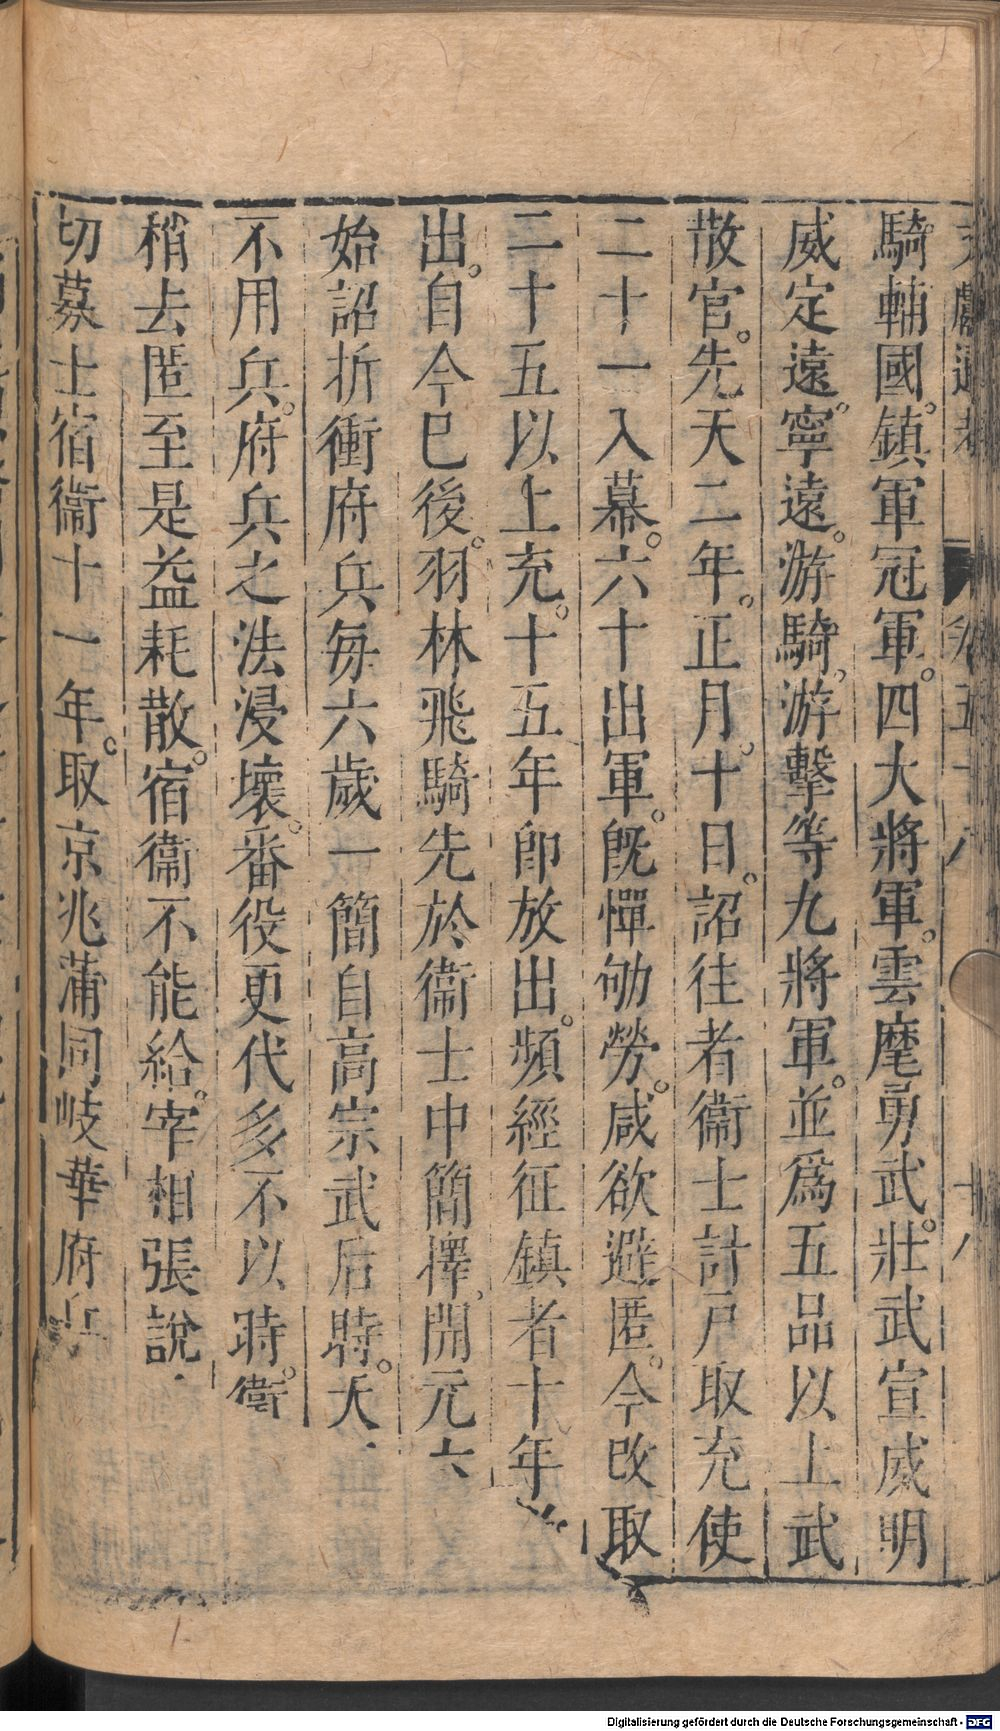 騎輔國。鎮軍冠軍。四大將軍。雲麾勇武。壯武宣威明
威定遠。寧遠。游騎。游擊等九將軍。並爲五品以上武
散官。先天二年。正月。十日。詔往者衞士計戶取充使
二十一入幕。六十出軍。旣憚劬勞。咸欲避匿。今改取
二十五以上充。十五年卽放出。頻經征鎮者十年
出。自今已後。羽林飛騎先於衞士中簡擇。開元六
始詔折衝府兵每六歲一簡自高宗武后時。天
不用兵。府兵之法浸壞。番役更代多不以時。衞
稍去匿至是益耗散。宿衞不能給。宰相張說
切募士宿衞十一年。取京兆蒲同岐華府兵
Digitalisierung gefördert durch die Deutsche Forschungsgemeinschaft - DFG